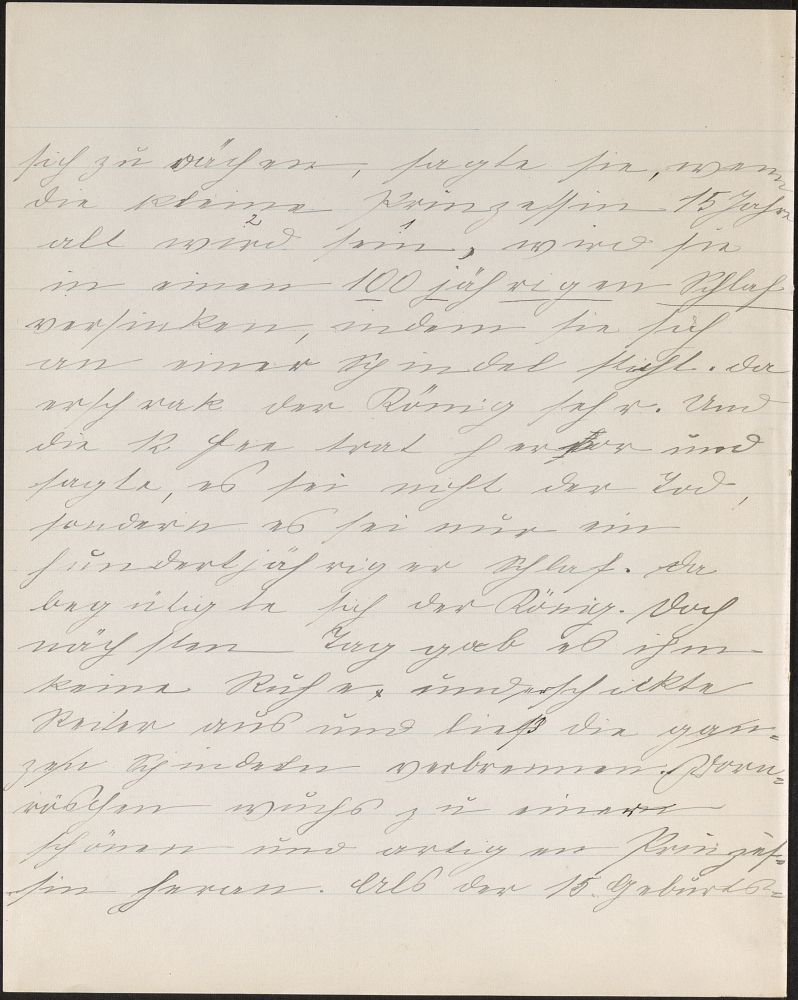 sich zu rächen, sagte sie, wenn
die kleine Prinzessin 15 Jahre
alt wird sein, wird sie
in einen 100 jährigen Schlaf
versinken, indem sie sich
an einer Spindel sticht. Da
erschrak der König sehr. Und
die 12 Fee trat hervor und
sagte, es sei nicht der Tod,
sondern es sei nur ein
hundertjähriger Schlaf. Da
begütigte sich der König. Doch
nächsten Tag gab es ihm
keine Ruhe, und er schickte
Reiter aus und ließ die gan=
zen Spindeln verbrennen. Dorn=
röschen wuchs zu einer
schönen und artigen Prinzes=
sin heran. Als der 15. Geburts=